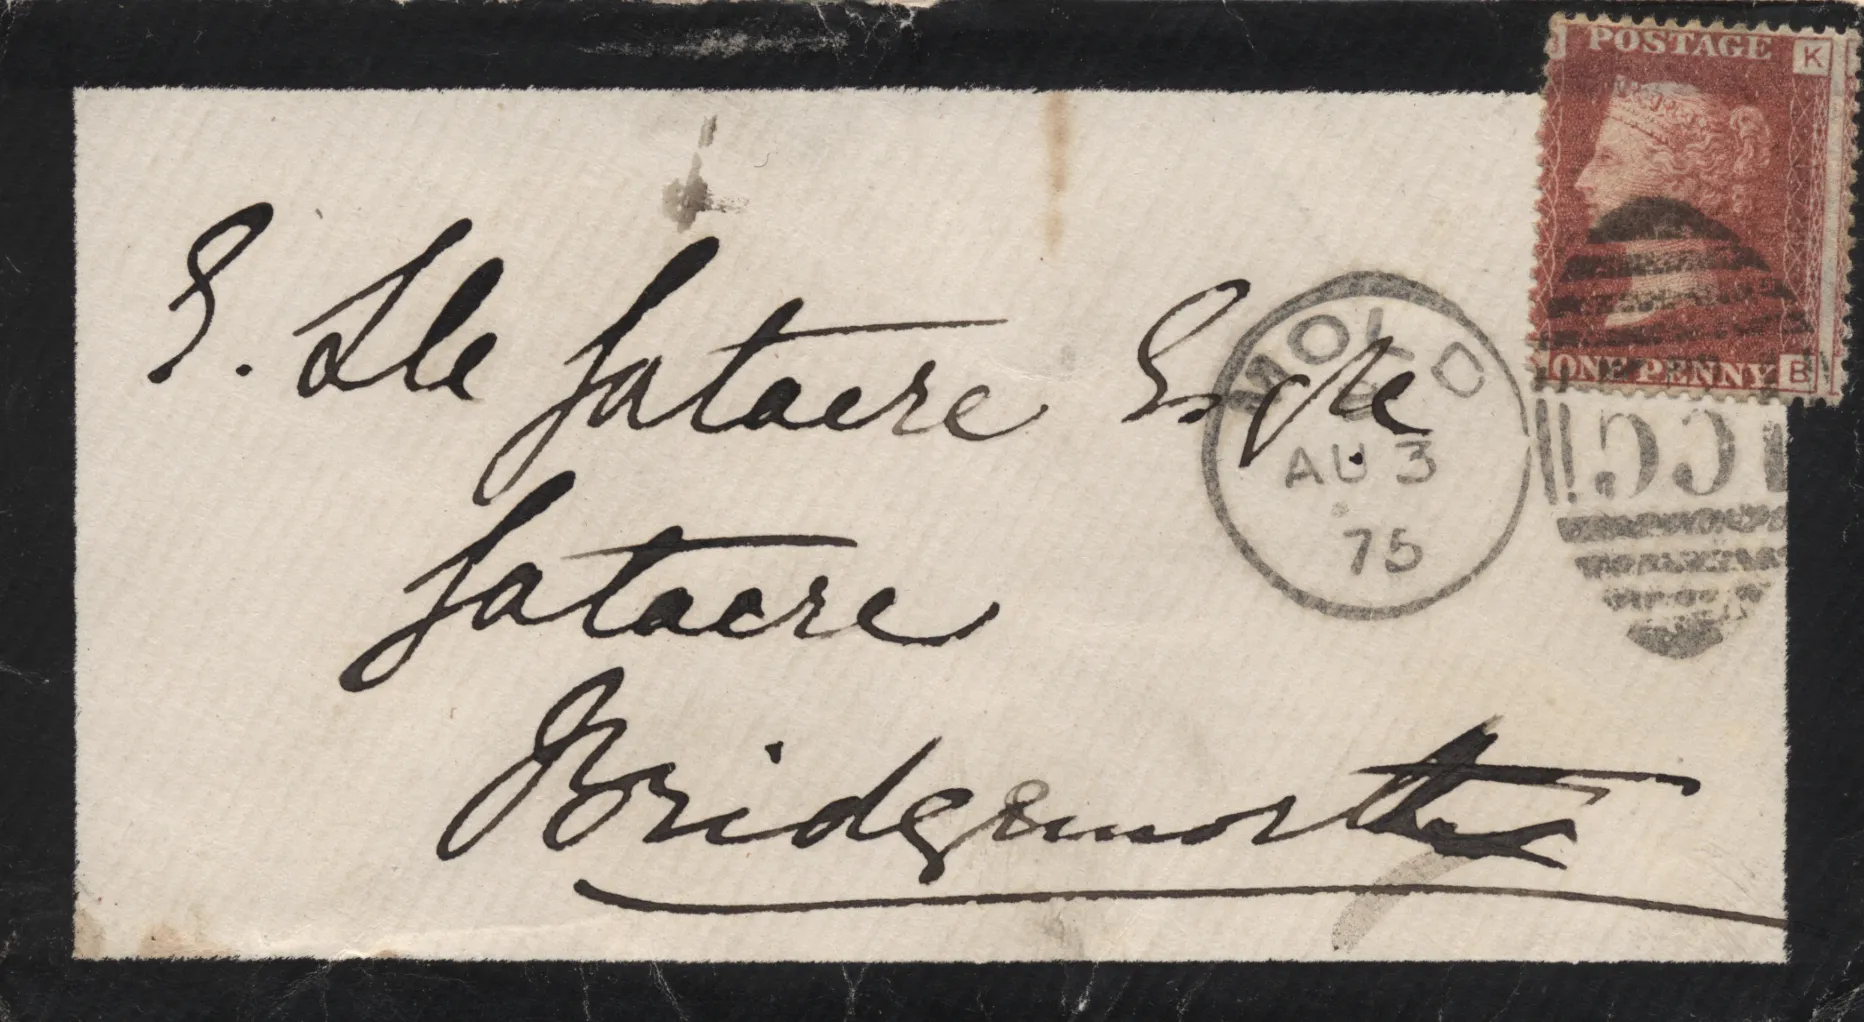 POSTAGE
K
ONE PENNY
B
MOLD
AU 3
75
E. Lle Gatacre Esqre
Gatacre
Bridgnorth